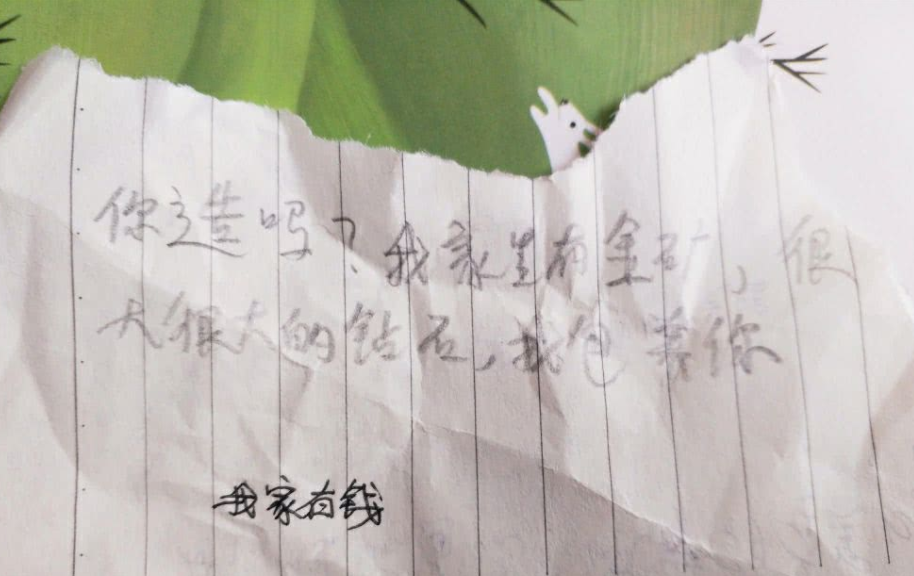 你造吗？我家里有金矿，很
大很大的钻石，我包养你
我家有钱